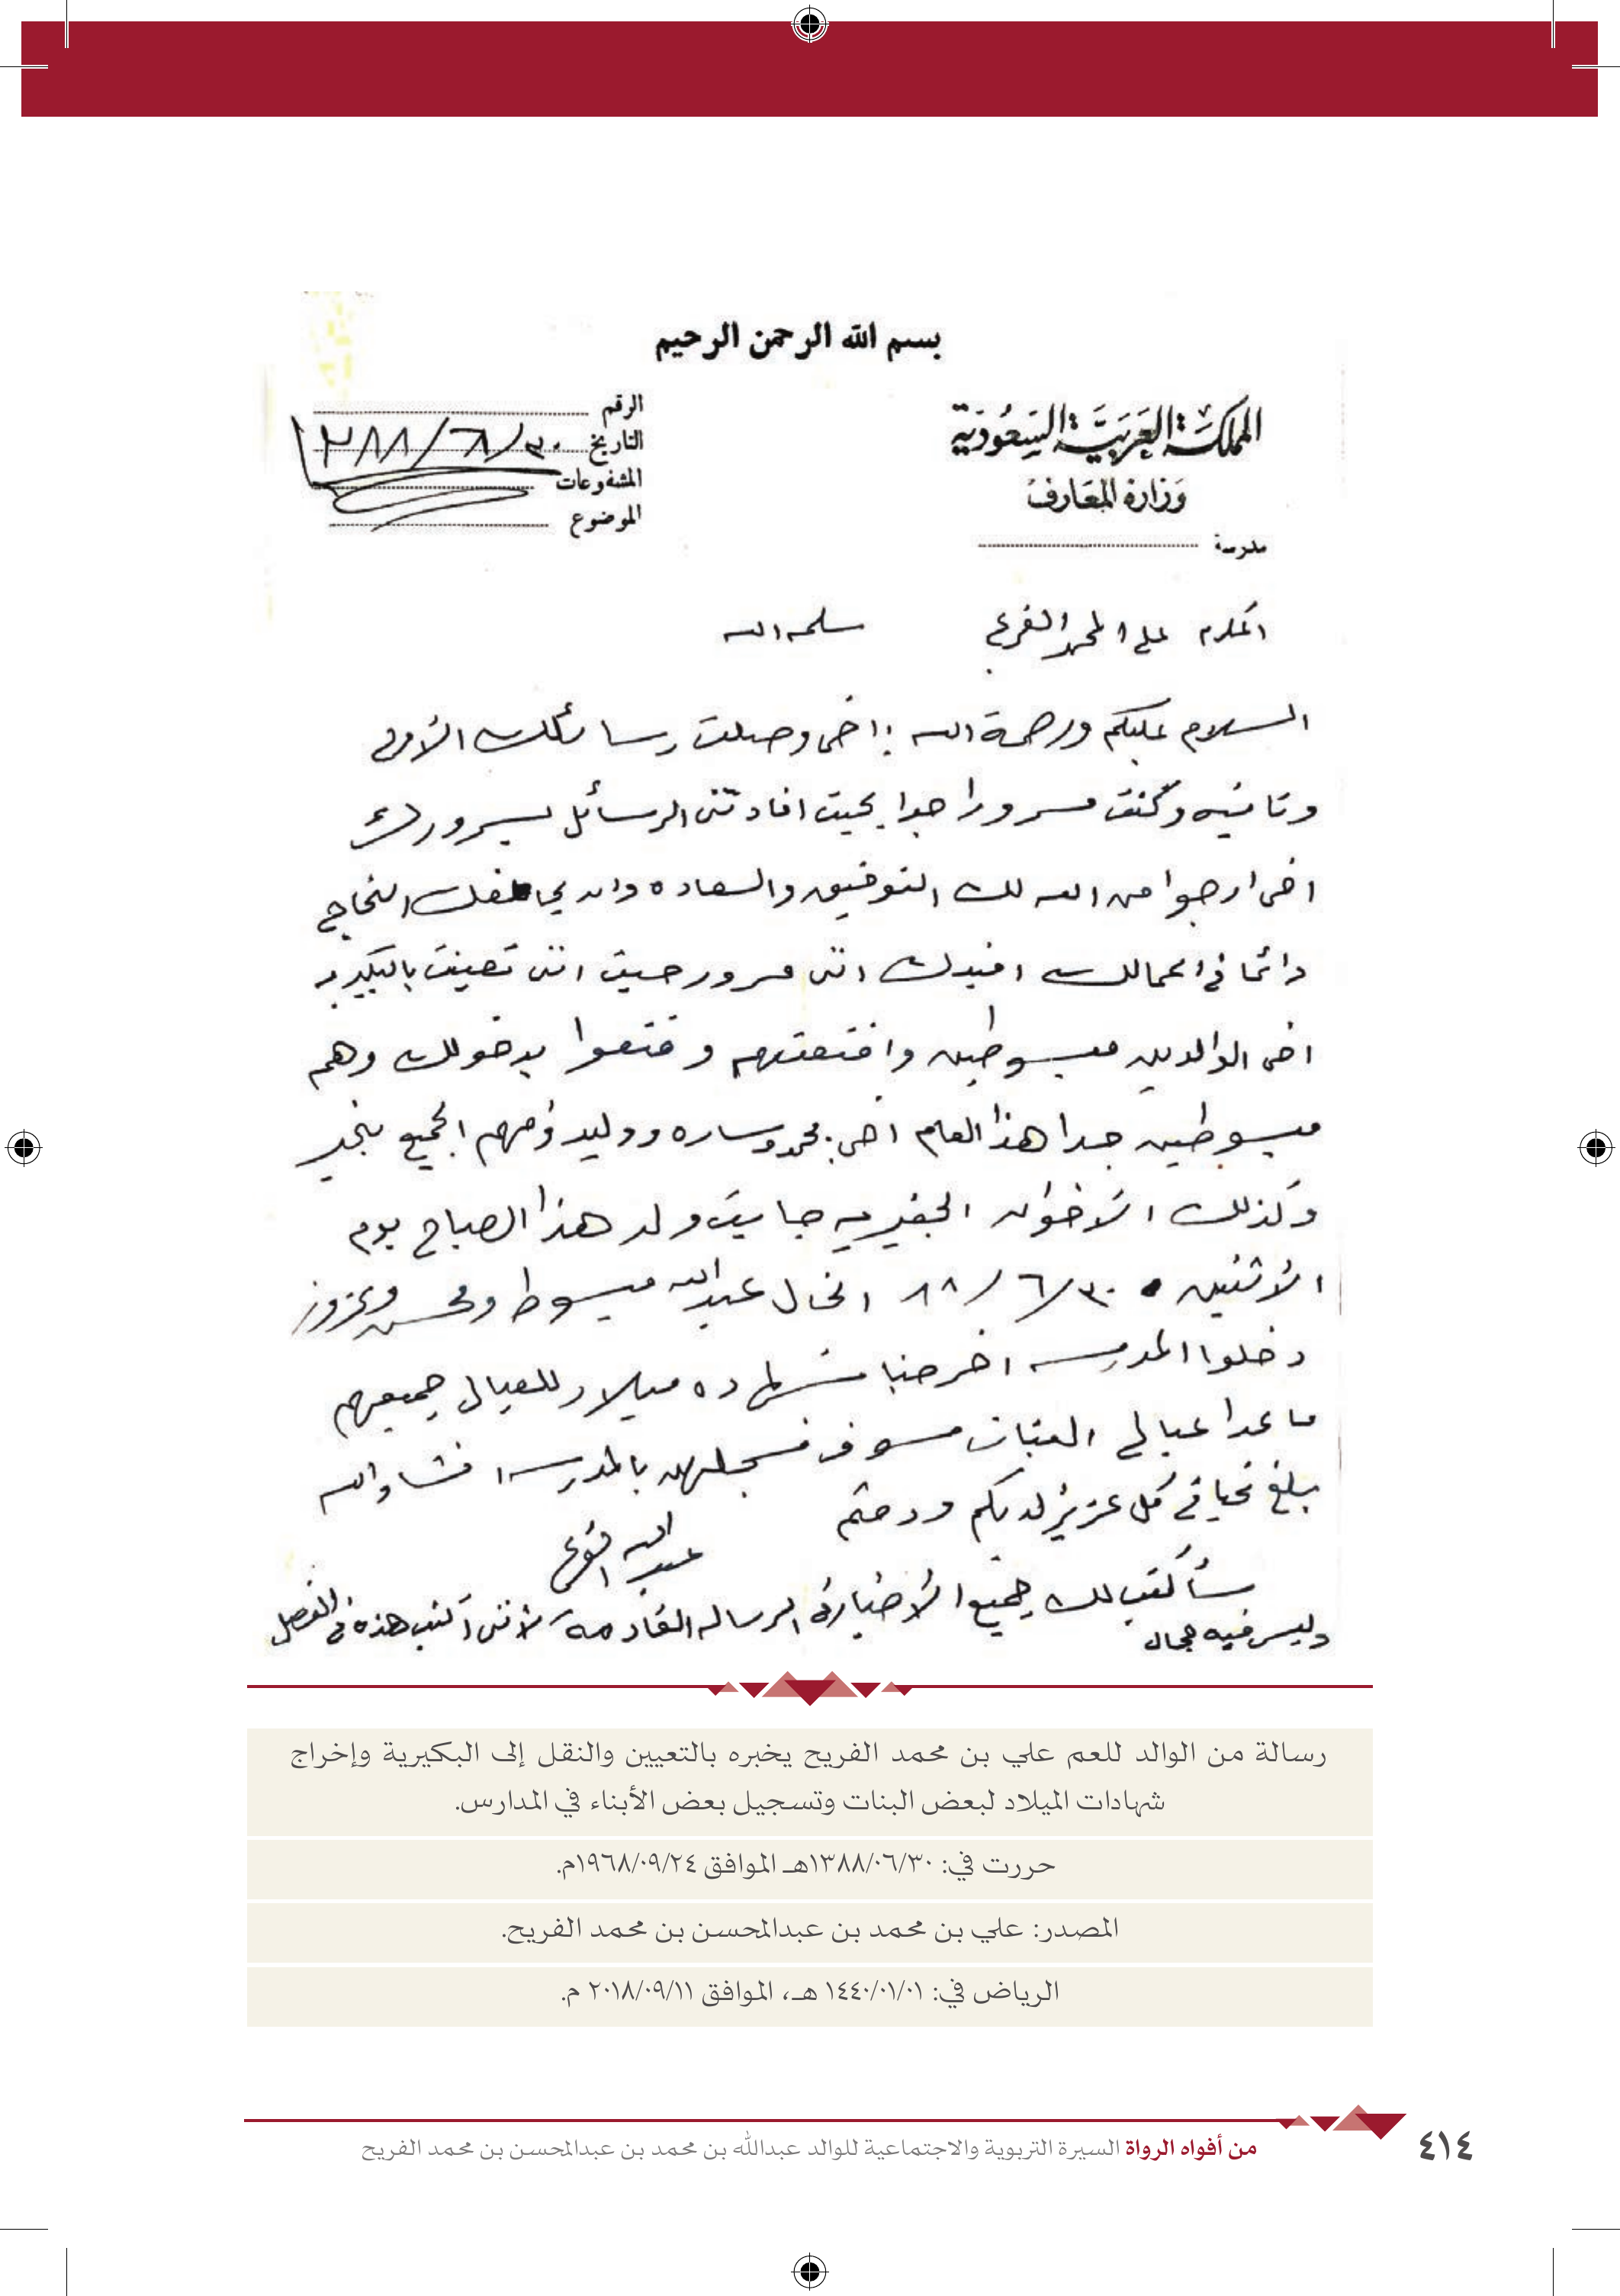 بسم الله الرحمن الرحيم
المملكة العربية السعودية
وزارة المعارف
مدرسة
الرقم
التاريخ ٣٠/٦/٣٨٨
المشفوعات
الموضوع
المكرم علي المحمد الفريح سلمه الله
السلام عليكم ورحمة الله اخي وصلت رسائلك الأولى
وثانيه وكنت مسرورا جدا بحيث افادتني الرسائل بسرورك
اخي ارجوا من الله لك التوفيق والسعاده وان النجاح
دائما في اعمالك افيدك انني مسرور حيث انني تعينت بالبكيريه
اخي الوالدين مبسوطين واقنعتهم وقتنعوا بدخولك وهم
مبسوطين جدا هذا العام اخي محمد وساره ووليد وأمهم الجميع بخير
وكذلك الأخوان جايت ولد هذا الصباح يوم
الأثنين ٣٠/٦/٨٨ الخال عبدالله مبسوط ومحسن وعزوز
دخلوا المدرسه اخرجنا شهاده ميلاد للعيال جميعهم
ماعدا عيالي البنات سوف نسجلهن بالمدرسه انشاء الله
بلغ تحياتي كل عزيز لديكم ودمتم
عبدالله الفريح
سأكتب لك جميع الأخبار في الرساله القادمة لأنني أكتب هذه في الفصل
وليس فيه مجال
رسالة من الوالد للعم علي بن محمد الفريح يخبره بالتعيين والنقل إلى البكيرية وإخراج
شهادات الميلاد لبعض البنات وتسجيل بعض الأبناء في المدارس.
حررت في: ١٣٨٨/٠٦/٣٠هـ الموافق ١٩٦٨/٠٩/٢٤م.
المصدر: علي بن محمد بن عبدالمحسن بن محمد الفريح.
الرياض في: ١٤٤٠/٠١/٠١ هـ، الموافق ٢٠١٨/٠٩/١١ م.
من أفواه الرواة السيرة التربوية والاجتماعية للوالد عبدالله بن محمد بن عبدالمحسن بن محمد الفريح
٤١٤